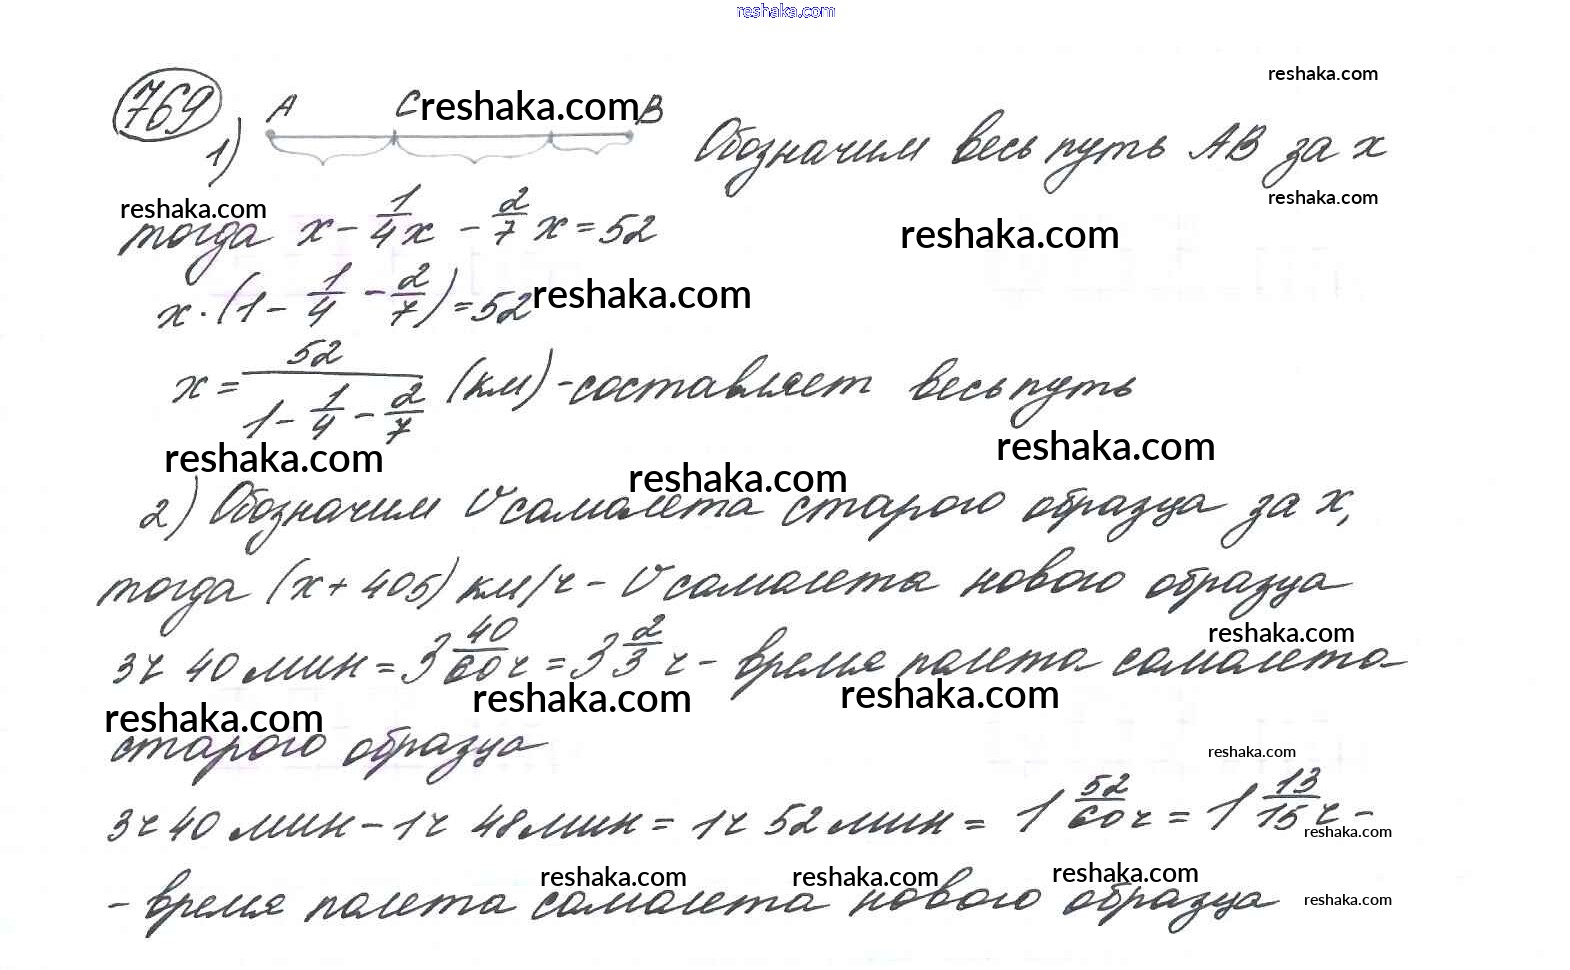 reshaka.com
reshaka.com
769
1) A C reshaka.com B Обозначим весь путь АВ за x
reshaka.com reshaka.com
тогда x - 1/4 x - 2/7 x = 52 reshaka.com
x · (1 - 1/4 - 2/7) = 52 reshaka.com
x = 52/(1 - 1/4 - 2/7) (км) - составляет весь путь
reshaka.com reshaka.com reshaka.com
2) Обозначим V самолета старого образца за x,
тогда (x + 405) км/ч - V самолета нового образца
reshaka.com
3ч 40 мин = 3 40/60 ч = 3 2/3 ч - время полета самолета
reshaka.com reshaka.com reshaka.com
старого образца
reshaka.com
3ч 40 мин - 1ч 48 мин = 1ч 52 мин = 1 52/60 ч = 1 13/15 ч -
reshaka.com
reshaka.com reshaka.com reshaka.com
- время полета самолета нового образца reshaka.com